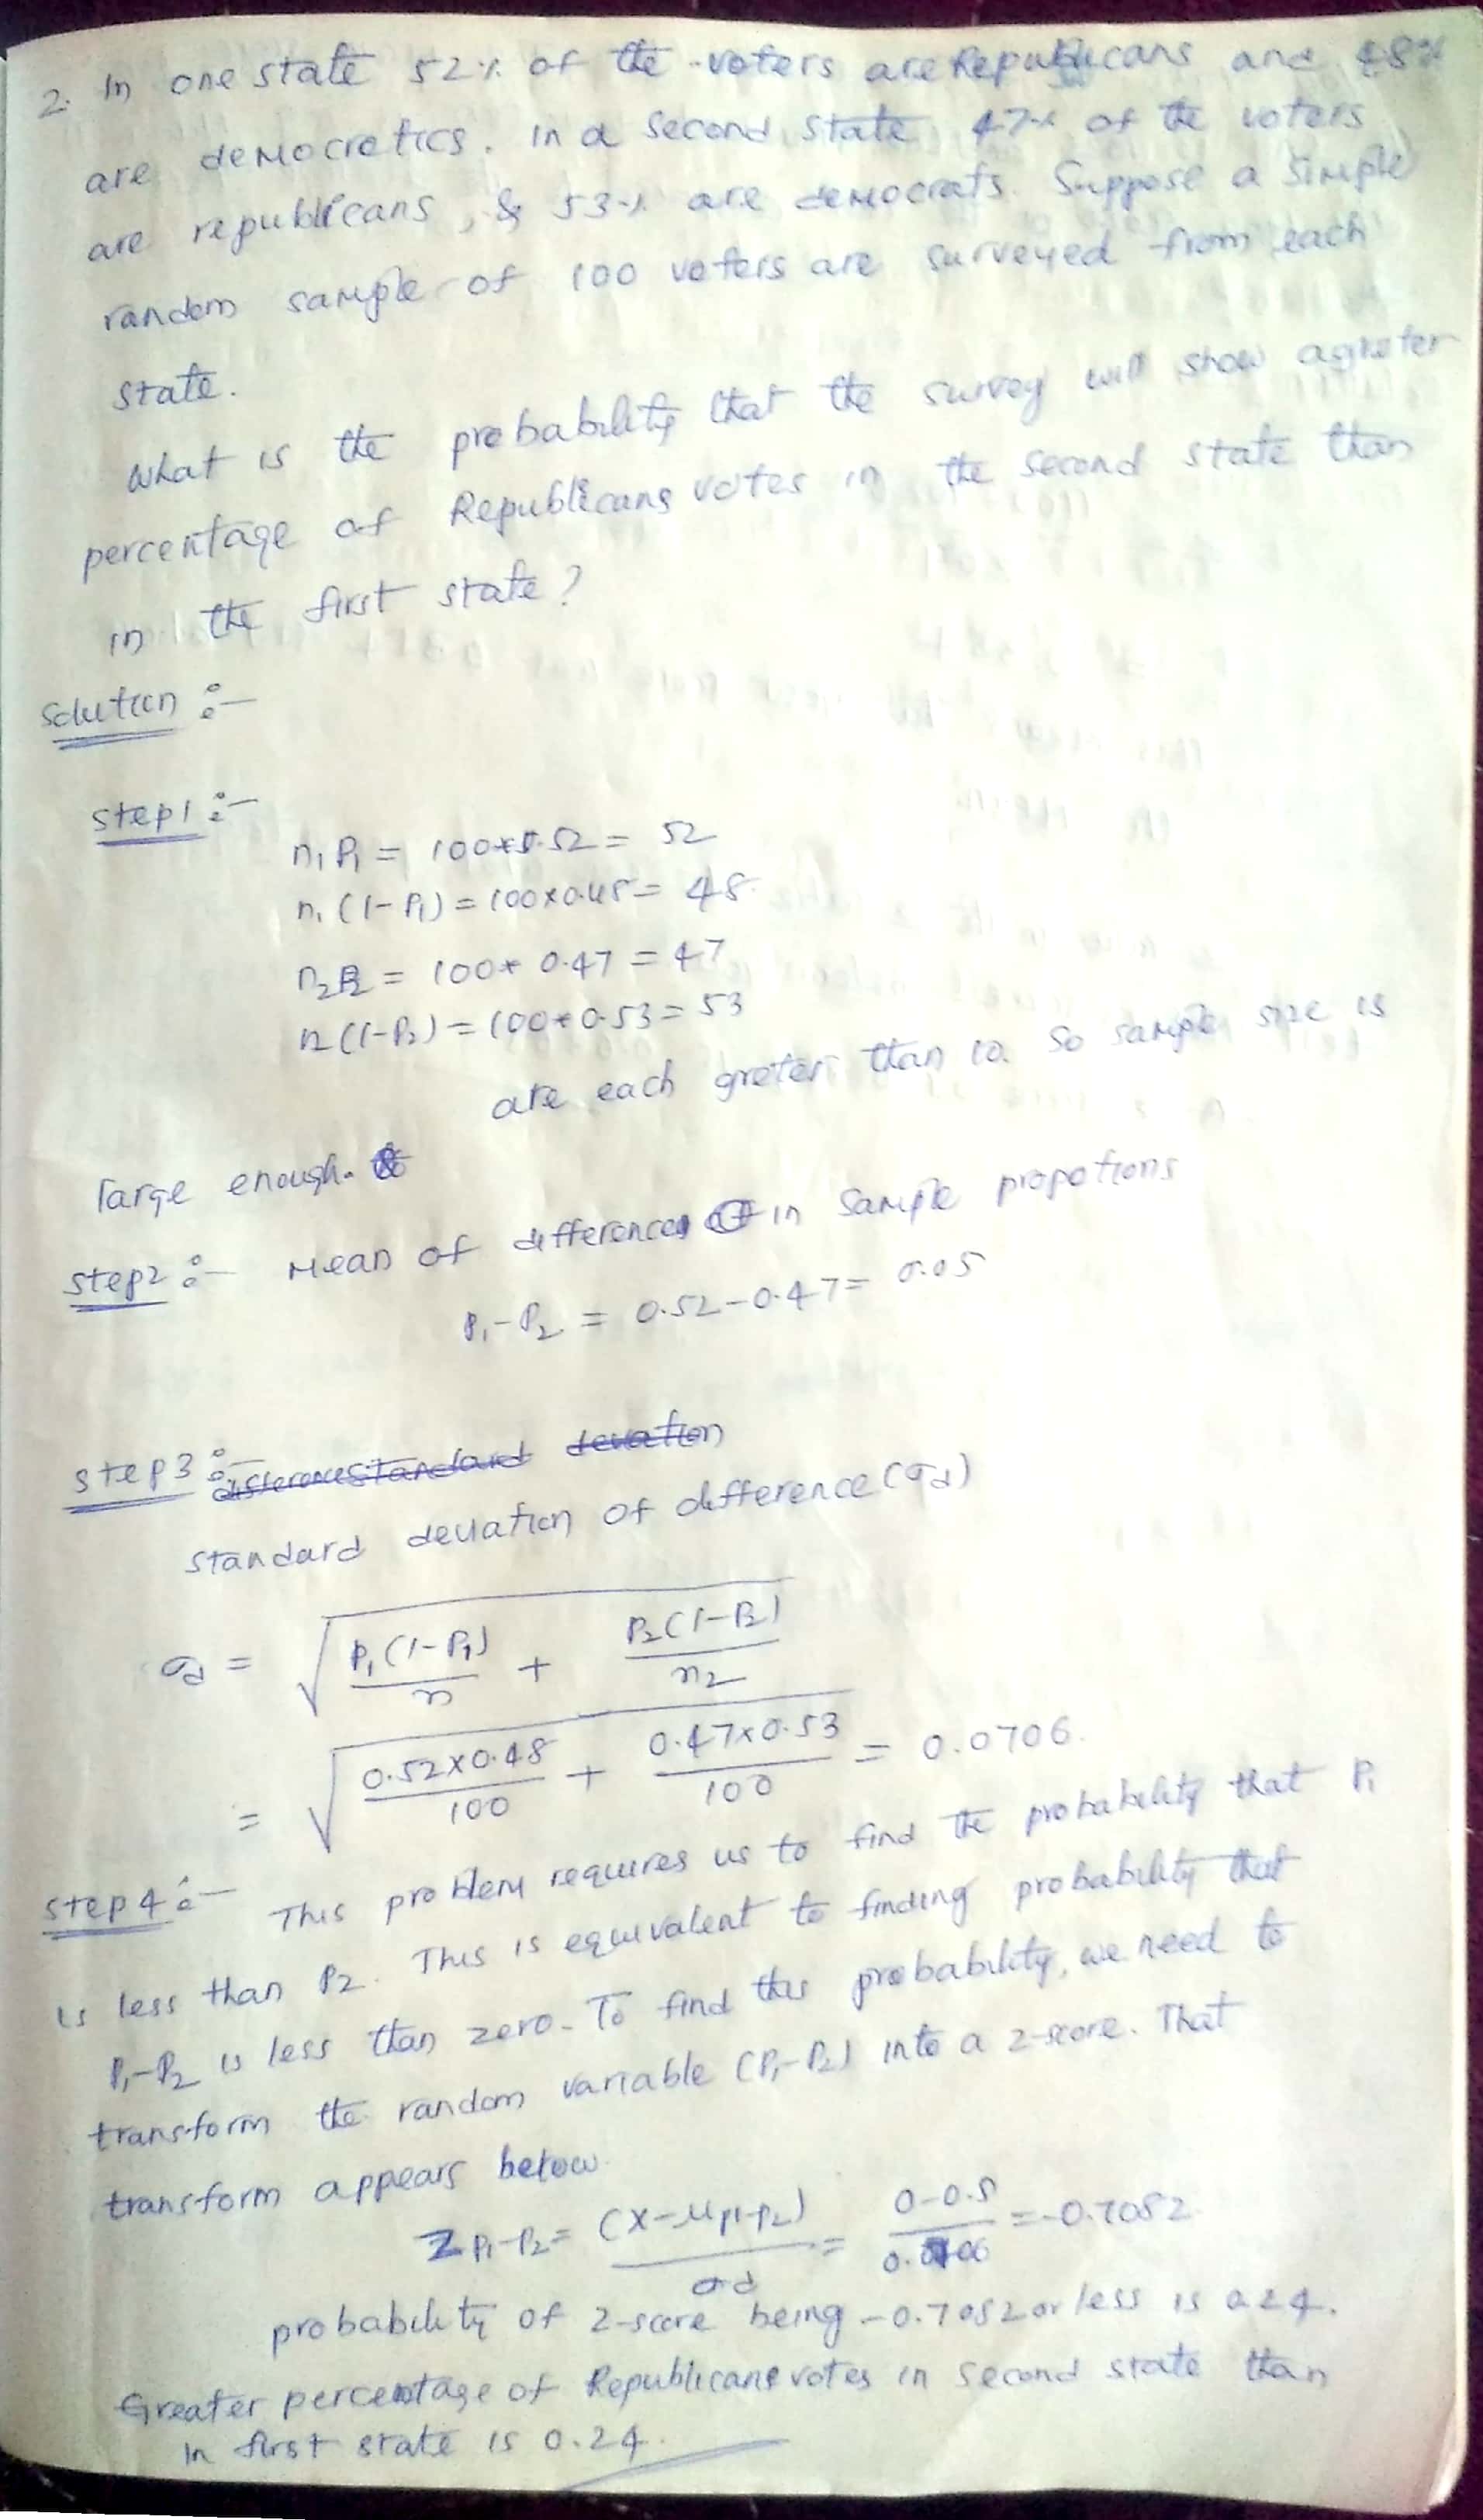 2. In one state 52% of the voters are Republicans and 48%
are democretics. In a second state 47% of the voters
are republicans, & 53% are democrats. Suppose a simple
random sample of 100 voters are surveyed from each
state.
What is the probability that the survey will show a greter
percentage of Republicans votes in the second state than
in the first state?
Solution :-
Step1 :-
n₁P₁ = 100*0.52 = 52
n₁(1-P₁) = 100×0.48 = 48
n₂P₂ = 100* 0.47 = 47
n(1-P₂) = 100*0.53 = 53
are each greter than 10. So sample size is
large enough.
Step2 :- Mean of differences in sample propotions
P₁-P₂ = 0.52-0.47= 0.05
Step3 :- standard deviation
standard deviation of difference (σd)
σd = √ P₁(1-P₁)/n + P₂(1-P₂)/n₂
= √ 0.52×0.48/100 + 0.47×0.53/100 = 0.0706.
Step4 :- This problem requires us to find the probability that P₁
is less than P2. This is equivalent to finding probability that
P₁-P₂ is less than zero. To find this probability, we need to
transform the random variable (P₁-P₂) into a z-score. That
transform appears below.
Z P₁-P₂ = (x-μp1-p2)/σd = 0-0.5/0.0706 = -0.7082
probability of z-score being -0.7082 or less is 0.24.
Greater percentage of Republicans votes in second state than
in first state is 0.24.